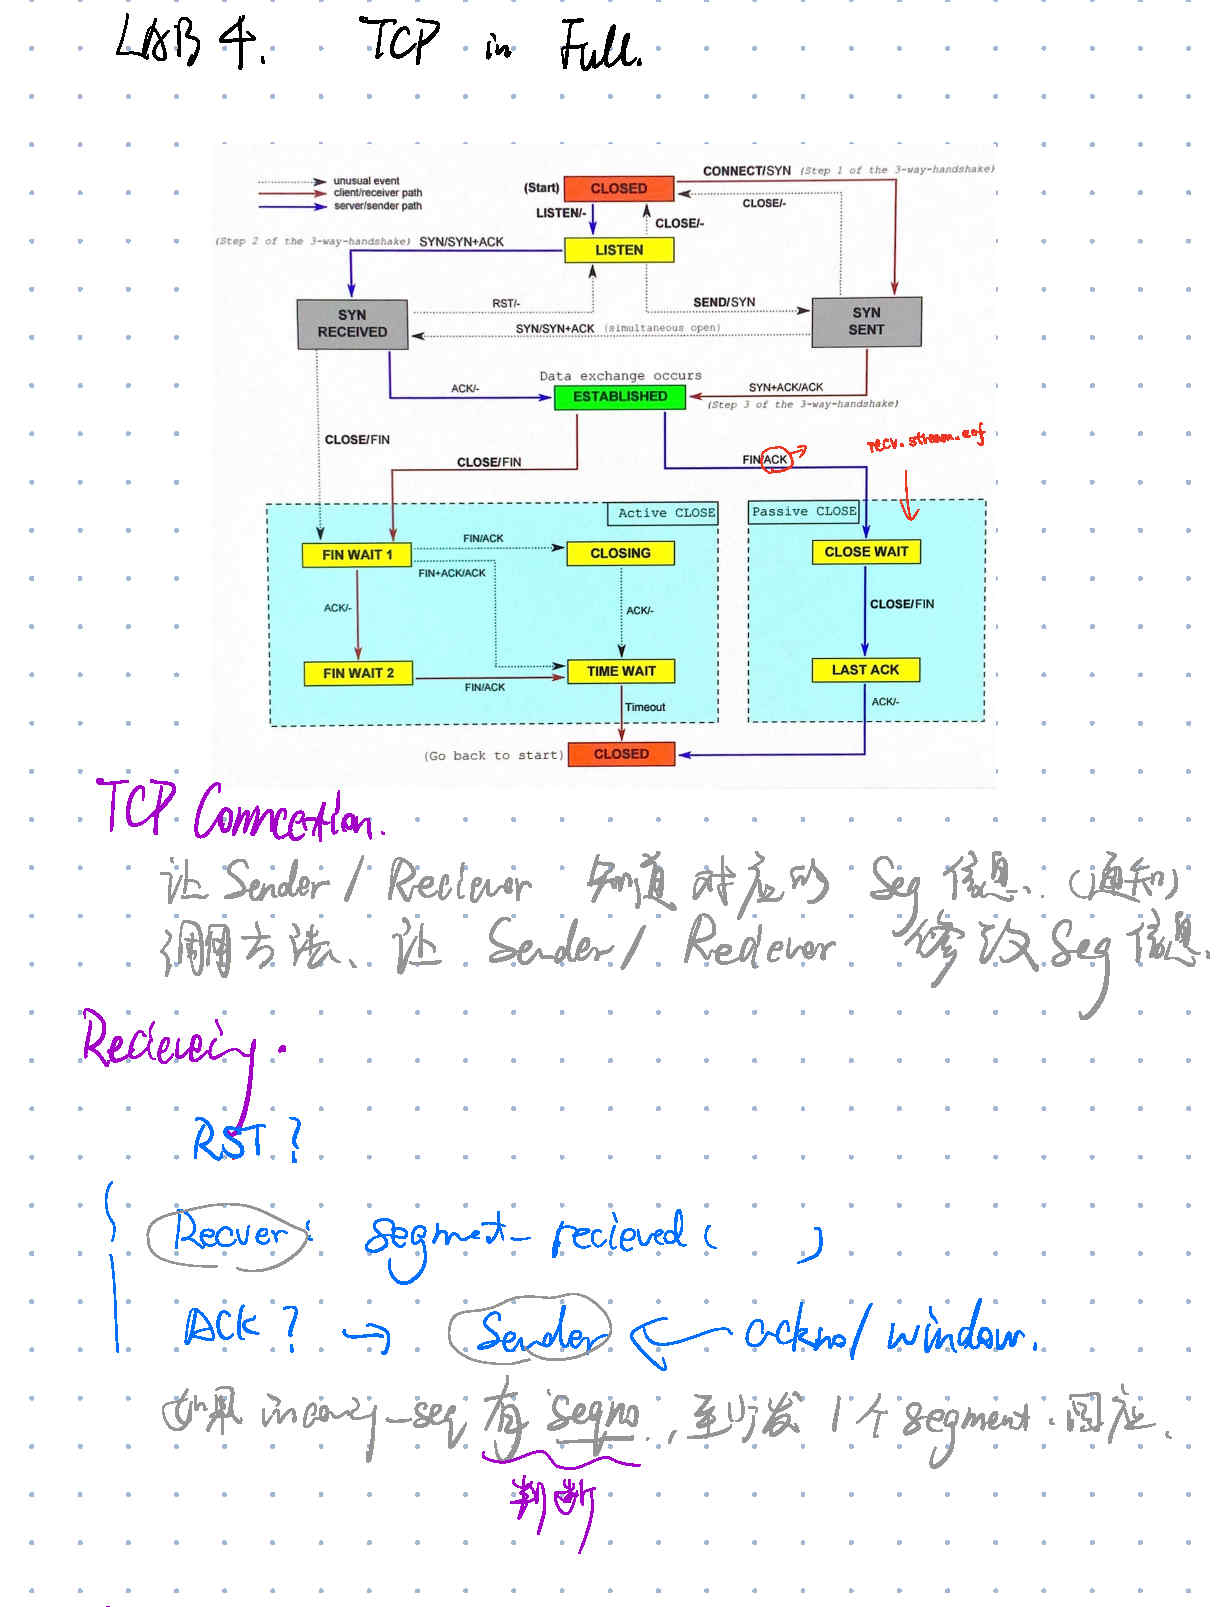 LAB 4. TCP in Full.
unusual event
client/receiver path
server/sender path
(Start) CLOSED
CONNECT/SYN (Step 1 of the 3-way-handshake)
CLOSE/-
LISTEN/-
CLOSE/-
(Step 2 of the 3-way-handshake) SYN/SYN+ACK
LISTEN
RST/-
SEND/SYN
SYN RECEIVED
SYN SENT
SYN/SYN+ACK (simultaneous open)
Data exchange occurs
ACK/-
ESTABLISHED
SYN+ACK/ACK
(Step 3 of the 3-way-handshake)
CLOSE/FIN
CLOSE/FIN
FIN/ACK
recv.stream.eof
Active CLOSE
Passive CLOSE
FIN WAIT 1
FIN/ACK
CLOSING
CLOSE WAIT
FIN+ACK/ACK
ACK/-
ACK/-
CLOSE/FIN
FIN WAIT 2
FIN/ACK
TIME WAIT
LAST ACK
Timeout
ACK/-
(Go back to start) CLOSED
TCP Conncetion.
让 Sender / Reciever 知道对应的 Seg 信息.(通知)
调用方法、让 Sender / Reciever 修改 Seg 信息.
Recieveing.
RST?
Recver: segment_recieved( )
ACK? → Sender ← ackno/window.
如果 incomig_seq 有 seqno, 至少发 1个 segment 回应.
判断